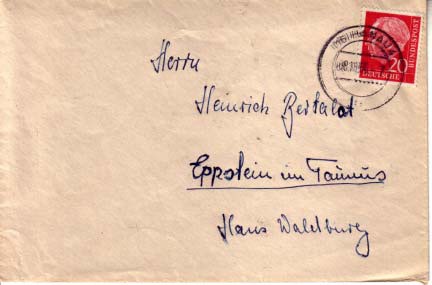 Herrn
Heinrich Bertalot
Eppstein im Taunus
Haus Waldburg
20
DEUTSCHE
BUNDESPOST
HANAU